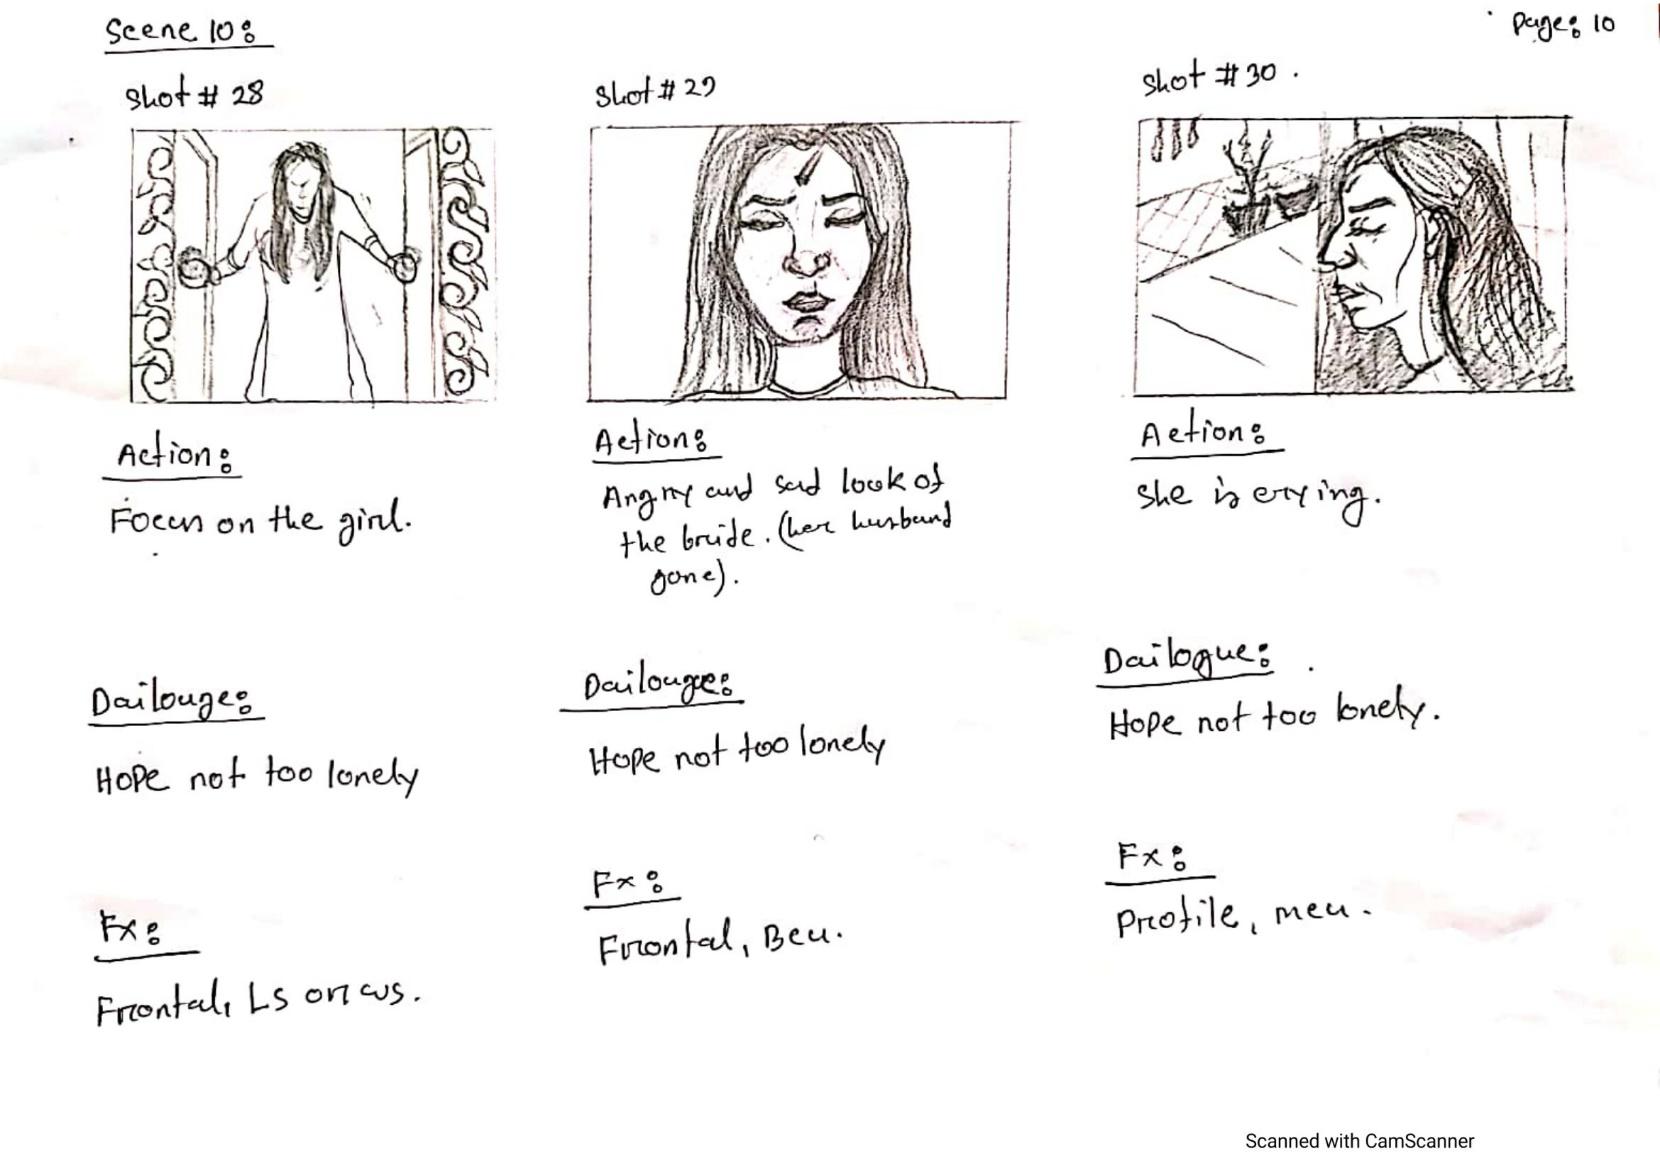 Scene 10:
Page: 10
Shot # 28
Action:
Focus on the girl.
Dailouge:
Hope not too lonely
Fx:
Frontal, Ls or ws.
Shot # 29
Action:
Angry and sad look of
the bride. (her husband
gone).
Dailouge:
Hope not too lonely
Fx:
Frontal, Bcu.
Shot # 30.
Action:
She is crying.
Dailogue:
Hope not too lonely.
Fx:
Profile, mcu.
Scanned with CamScanner